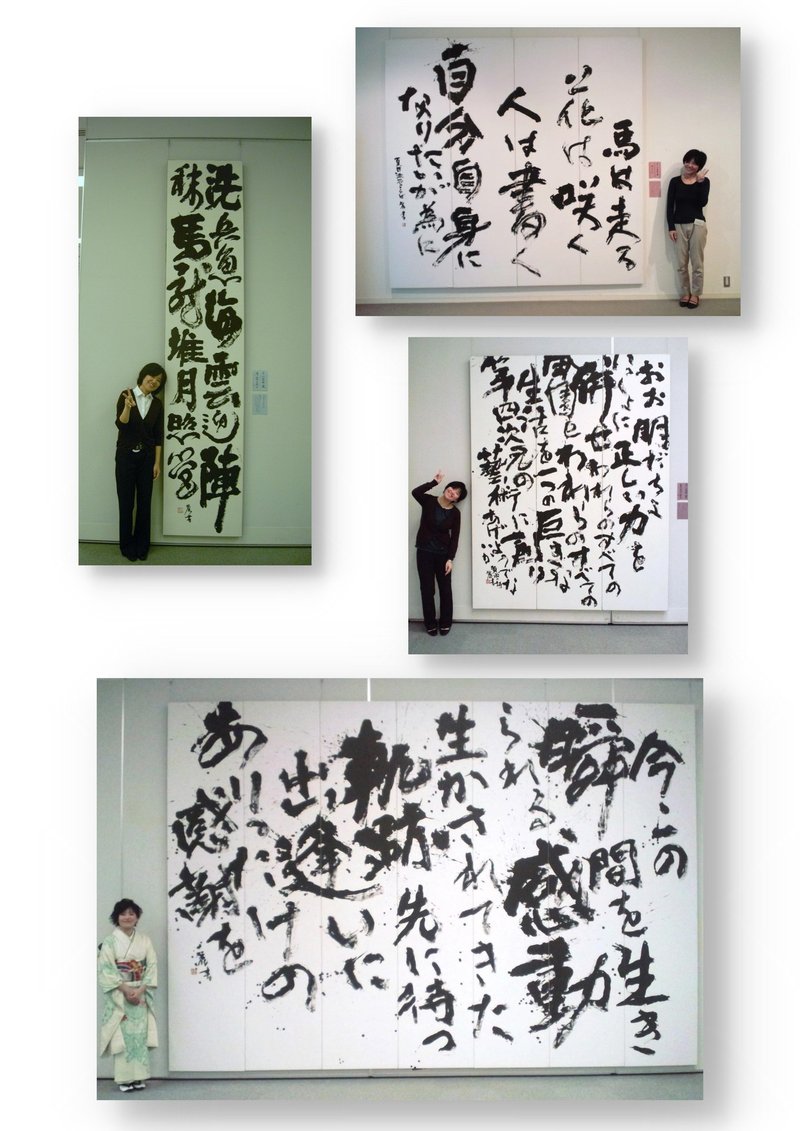 洗兵魚海雲迎陣
秣馬龍堆月照営
馬は走る
花は咲く
人は書く
自分自身に
なりたいが為に
おお朋だちよ
いっしょに正しい力を
併せわれらのすべての
田園とわれらのすべての
生活を一つの巨きな
第四次元の藝術に創り
あげようでないか
今この
瞬間を生き
られる感動
生かされてきた
軌跡先に待つ
出逢いに
ありったけの
感謝を